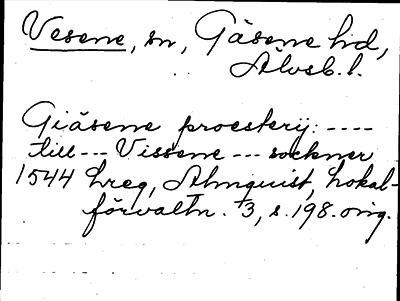 Vesene, sn, Gäsene hd,
Älvsb. l.
Giäsene proesterij: ----
till --- Vissene --- sockner
1544 hreg, Almquist, Lokal-
förvaltn. 3, s. 198. orig.